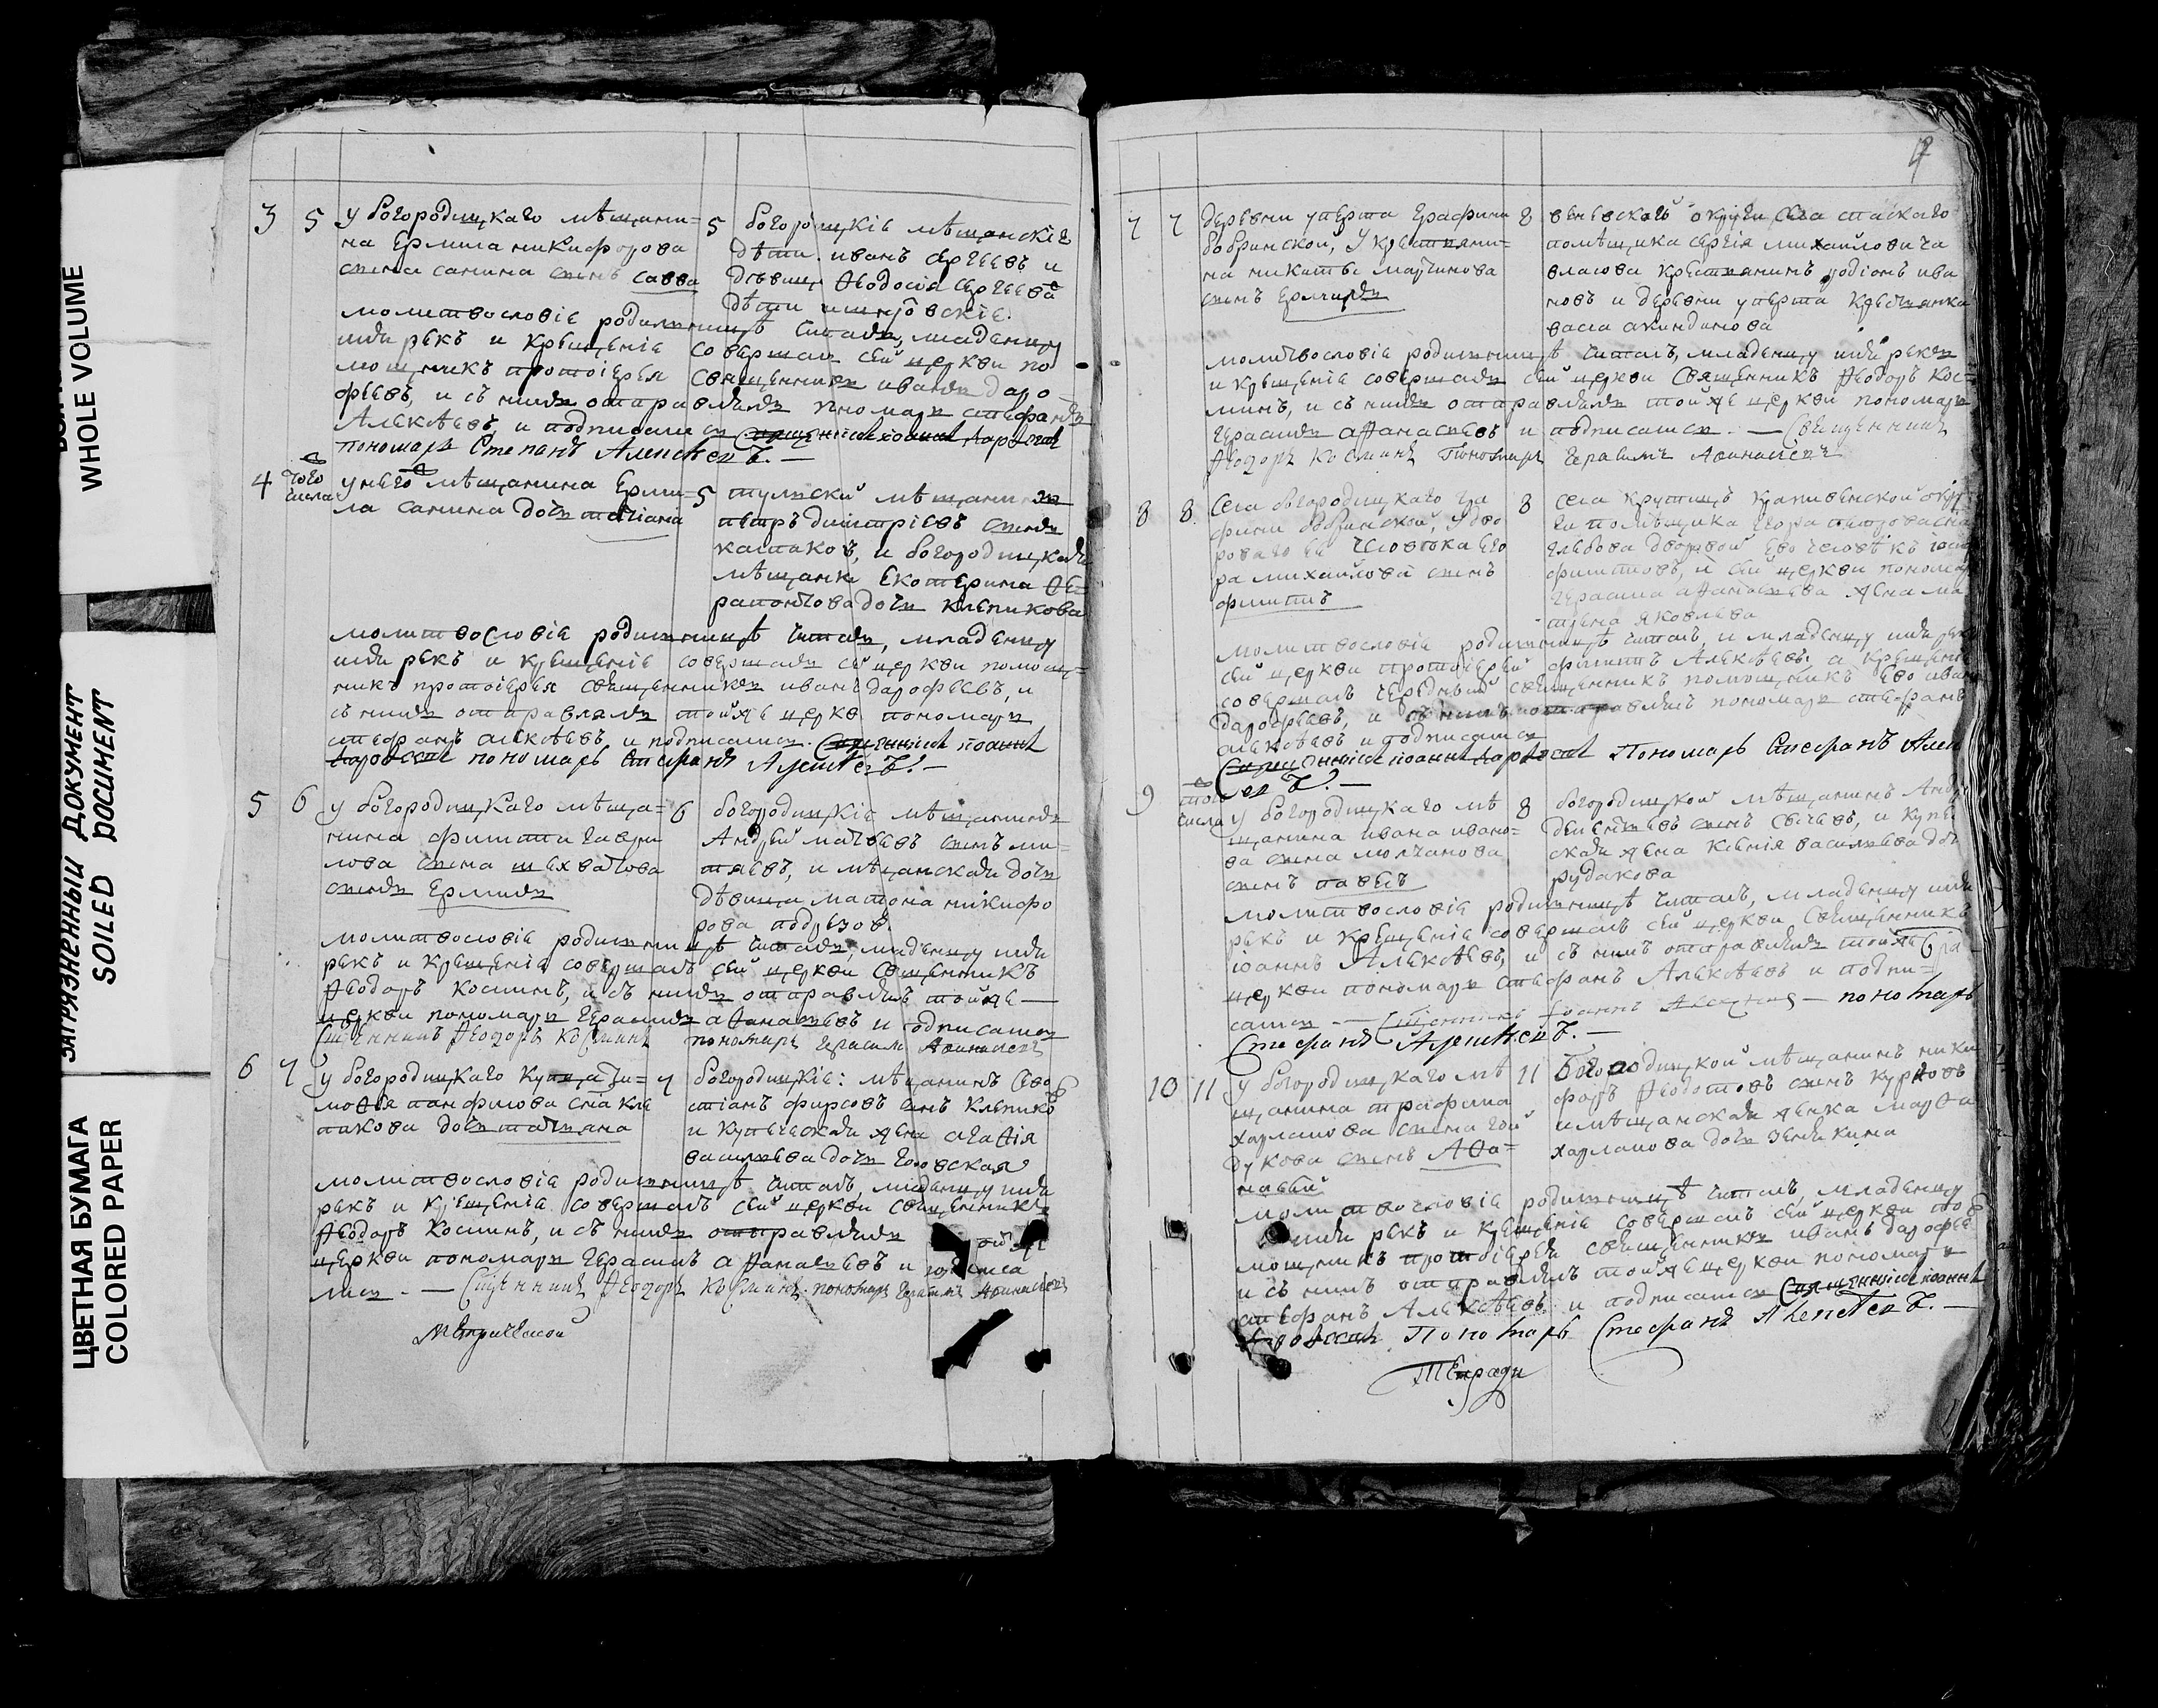 WHOLE VOLUME
ЗАГРЯЗНЕННЫЙ ДОКУМЕНТ
SOILED DOCUMENT
ЦВЕТНАЯ БУМАГА
COLORED PAPER
3 5 у богородицкаго мѣщани=
на Ермила никифорова
сына санина сынъ савва
5 богородицкіе мѣщанскіе
дѣти иванъ сергеевъ и
девица Ѳеодосія сергеева
дѣти
молитвословіе родительницѣ читалъ, младенцу
имя рекъ и крещеніе совершалъ сей церкви по
мощникъ протоіерея священникъ иванъ даро
феевъ, и съ нимъ отправлялъ пономарь стефанъ
Алексѣевъ, и подписались Священникъ іоаннъ дарофеевъ
пономарь Степанъ Алексѣевъ. —
4 того числа у него мѣщанина Ерми=
ла санина дочь татіана
5 тульскій мѣщанинъ
петръ димитріевъ сынъ
кастаковъ, и богородицкая
мѣщанка екатерина Ѳе=
рапонтова дочь клепикова
молитвословіе родительницѣ читалъ, младенцу
имя рекъ и крещеніе совершалъ сей церкви помощ=
никъ протоіерея священникъ иванъ дарофеевъ, и
съ нимъ отправлялъ тойже церкви пономарь
стефанъ алексѣевъ и подписались. Священникъ іоаннъ
дарофеевъ пономарь Стефанъ Алексѣевъ. —
5 6 у богородицкаго мѣща=
нина филиппа гаври
лова сына шехватова
сынъ Ермилъ
6 богородицкіе мѣщанинъ
Андрей матвеевъ сынъ ми=
тяевъ, и мѣщанская дочь
дѣвица матрона никифо
рова
молитвословіе родительницѣ читалъ, младенцу имя
рекъ и крещеніе совершалъ сей церкви священникъ
Ѳеодоръ Косминъ, и съ нимъ отправлялъ тойже —
церкви пономарь герасимъ аѲанасьевъ и подписались
Священникъ Ѳеодоръ Косминъ пономарь Герасимъ Афанасьевъ
6 7 у богородицкаго купца Ти=
моѲея панфилова сна кле
пикова дочь татьяна
7 богородицкіе: мѣщанинъ сево
стіанъ фирсовъ снъ клепико
и купеческая жена агаѲія
васильева дочь
молитвословіе родительницѣ читалъ, младенцу имя
рекъ и крещеніе совершалъ сей церкви священникъ
Ѳеодоръ Косминъ, и съ нимъ отправлялъ тойже
церкви пономарь герасимъ аѲанасьевъ и подписа
лись. — Священникъ Ѳеодоръ Косминъ. пономарь Герасимъ Афанасьевъ
Метрической
7 7 деревни уперта графини
бобринской, у крестьяни=
на никиты мартинова
сынъ Ермилъ
8 веневской округи села
помѣщика сергія михайловича
власова крестьянинъ родіонъ ива
новъ и деревни уперта крестьянка
васса акиндинова
молитвословіе родительницѣ читалъ, младенцу имя рекъ
и крещеніе совершалъ сей церкви священникъ Ѳеодоръ Кос=
минъ, и съ нимъ отправлялъ тойже церкви пономарь
герасимъ аѲанасьевъ и подписались. — Священникъ
Ѳеодоръ Косминъ Пономарь Герасимъ Афанасьевъ
8 8 села богородицкаго гра
фини бобринской, у дво
роваго ея человека его
ра михайлова сынъ
филиппъ
8 села крутицъ крапивенской округ
ги помѣщика егора петрова сна
глебова дворовой ево человѣкъ
филиповъ, и сей церкви пономаря
герасима аѲанасьева жена ма
трена яковлева
молитвословіе родительницѣ читалъ, и младенцу имя рекъ
сей церкви протоіерей филиппъ Алексѣевъ. а крещеніе
совершалъ чередный священникъ помощникъ ево иванъ
дарофеевъ, и съ нимъ отправлялъ пономарь стефанъ
алексѣевъ и подписались
Священникъ іоаннъ дарофеевъ Пономарь Стефанъ Алек
сѣевъ. —
9 того числа у богородицкаго мѣ
щанина ивана ивано=
ва сына молчанова
сынъ павелъ
8 богородицкой мѣщанинъ Андрей
сынъ свічевъ, и купе
ская жена ксенія васильева доч
рудакова
молитвословіе родительницѣ читалъ, младенцу имя
рекъ и крещеніе совершалъ сей церкви священникъ
іоаннъ Алексѣевъ, и съ нимъ отправлялъ тойже
церкви пономарь стефанъ Алексѣевъ и подпи=
сались. — Священникъ Іоаннъ Алексѣевъ — пономарь
Стефанъ Алексѣевъ. —
10 11 у богородицкаго мѣ
щанина трафима
харламова сына гой
дукова сынъ АѲа=
насей
11 Богородицкой мѣщанинъ ники
форъ Ѳеодотовъ сынъ курковъ
и мѣщанская женка марѲа
харламова дочь зенякина
молитвословіе родительницѣ читалъ, младенцу
имя рекъ и крещеніе совершалъ сей церкви по
мощникъ протоіерея священникъ иванъ дарофее
и съ нимъ отправлялъ тойже церкви пономарь
стефанъ Алексѣевъ и подписались Священникъ іоаннъ
дарофеевъ Пономарь Стефанъ Алексѣевъ. —
Тетради